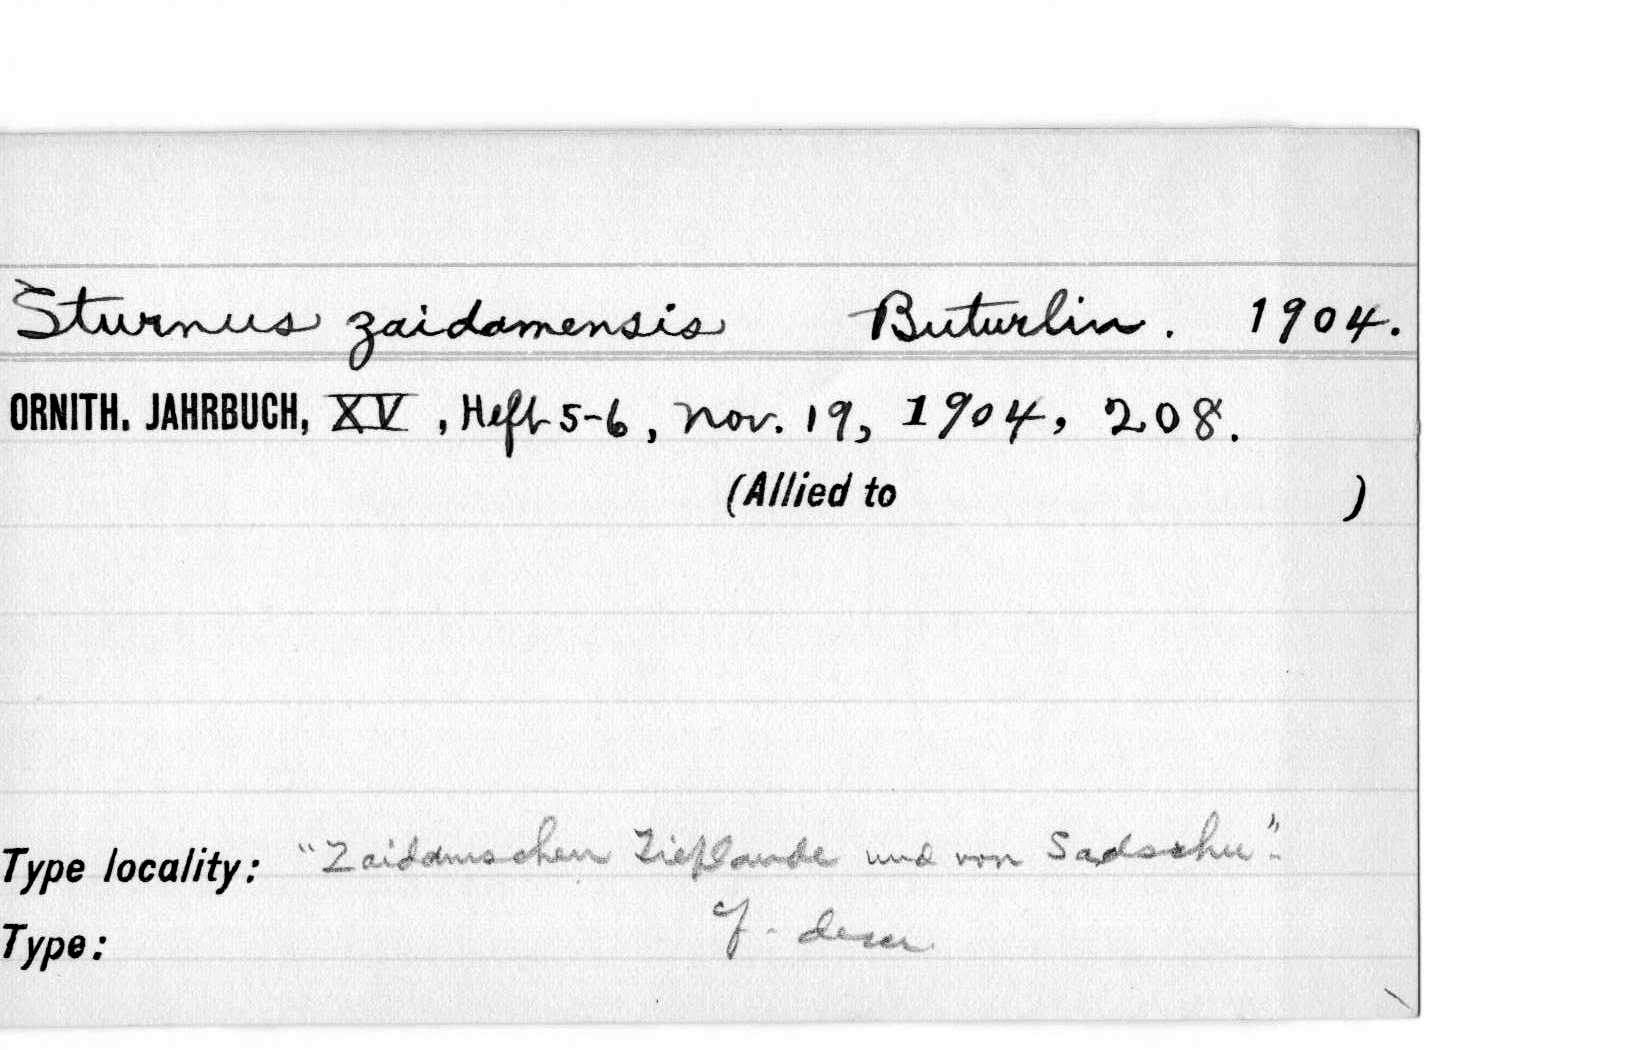 Sturnus zaidamensis Buturlin. 1904.
ORNITH. JAHRBUCH, XV, Heft 5-6, Nov. 19, 1904, 208.
(Allied to )
Type locality: "Zaidamschen Tieflande und von Sadschu".
Type: cf. descr.